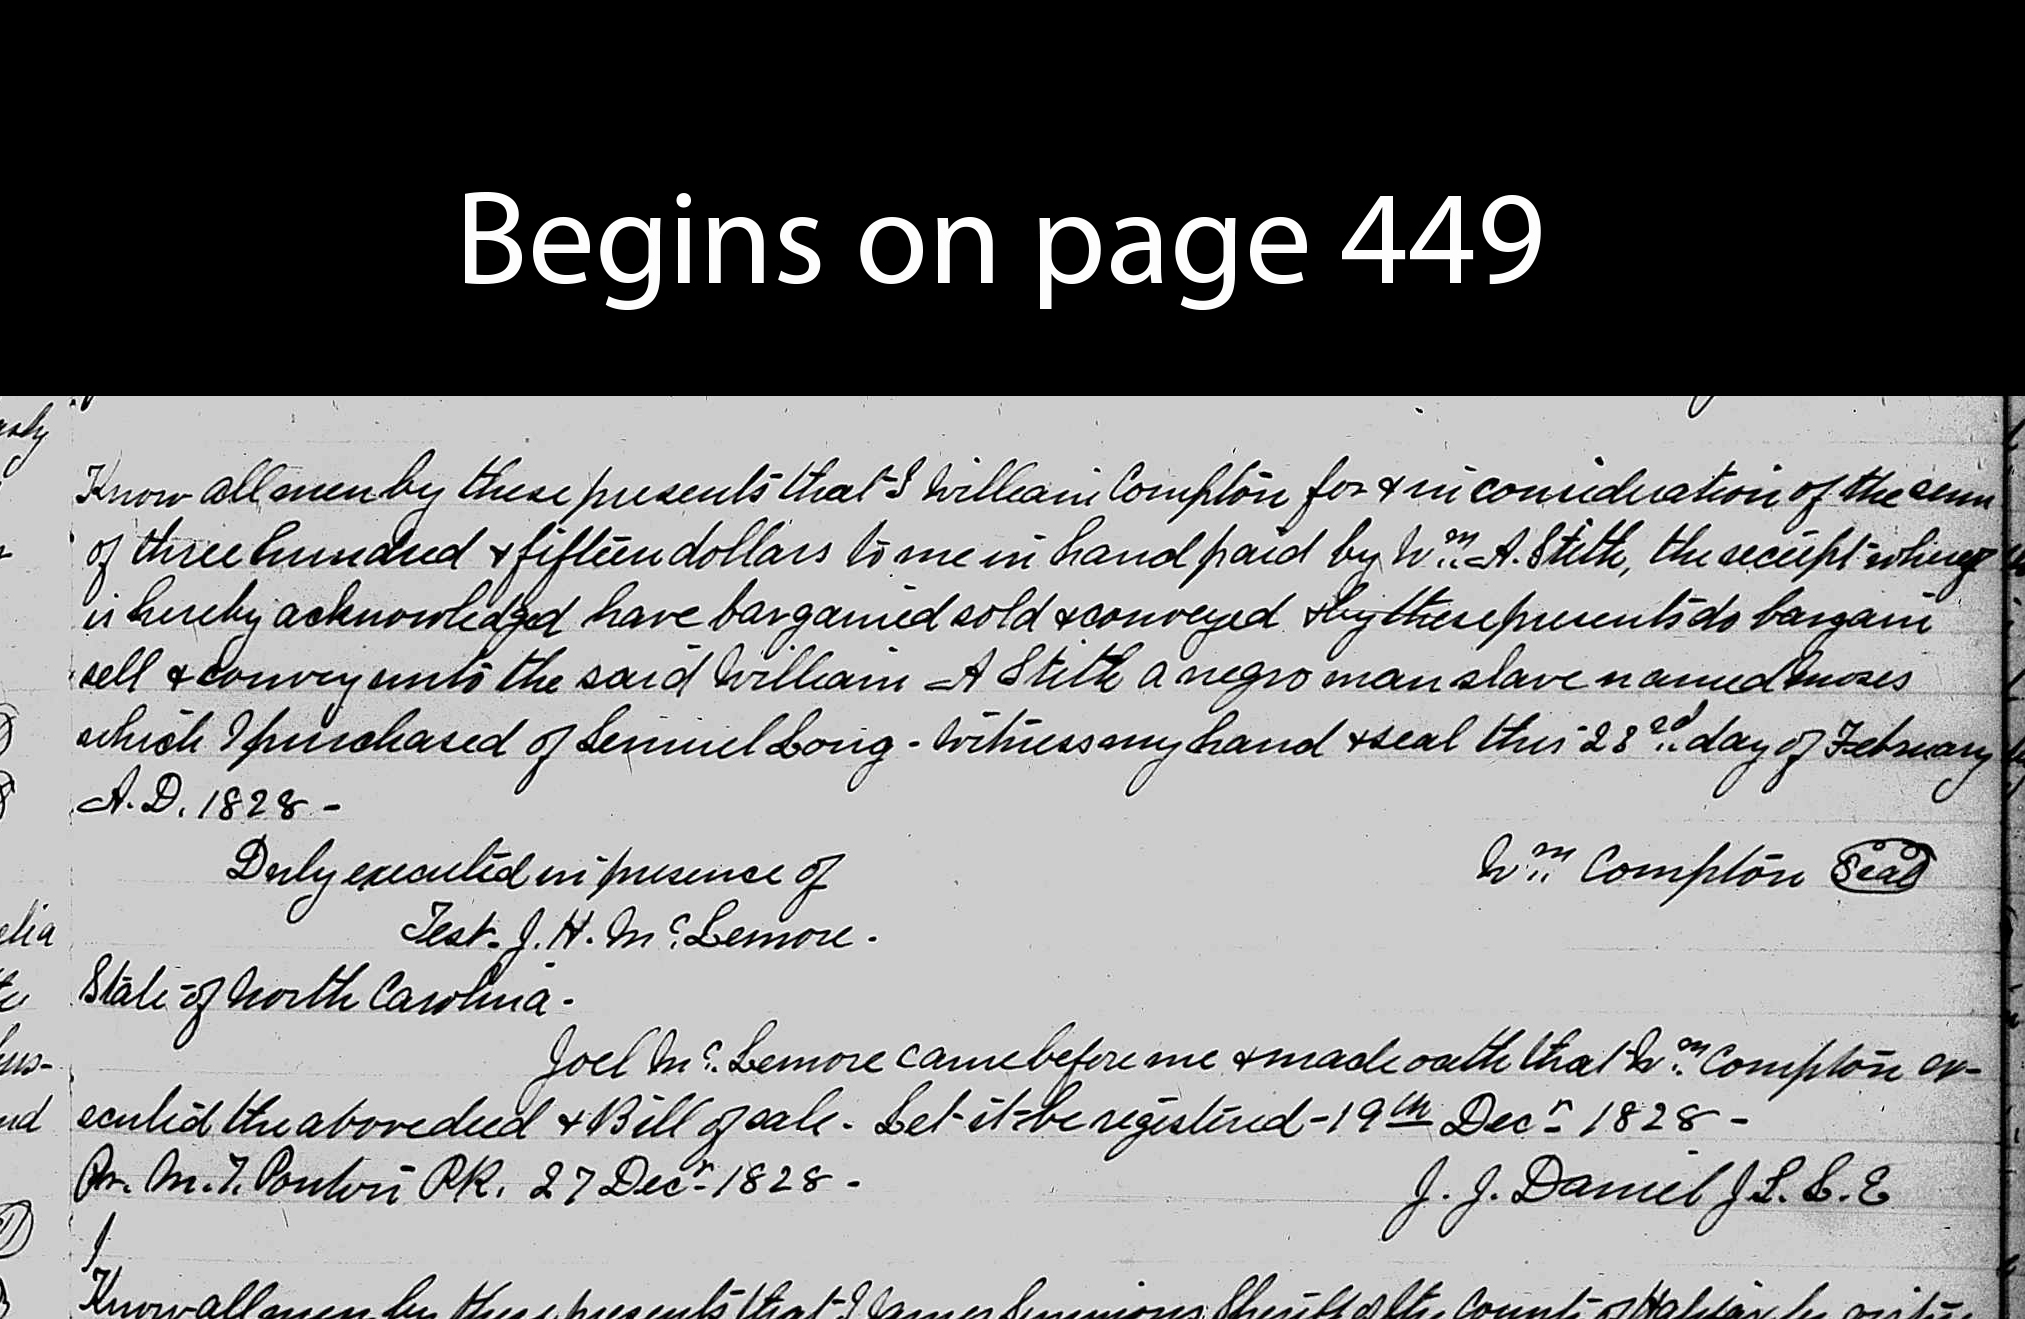 Begins on page 449
Know all men by these presents that I William Compton for & in consideration of the sum
of three hundred & fifteen dollars to me in hand paid by Wm. A. Stith, the receipt whereof
is hereby acknowledged have bargained sold & conveyed & by these presents do bargain
sell & convey unto the said William A Stith a negro man slave named Moses
which I purchased of Lemuel Long - Witness my hand & seal this 23rd. day of February
A. D. 1828 -
Duly executed in presence of
Wm. Compton Seal
Test. J. H. Mc. Lemore.
State of North Carolina -
Joel Mc. Lemore came before me & made oath that Wm. Compton ex-
ecuted the above deed & Bill of sale. Let it be registered - 19th Decr 1828 -
Pr. M. T. Ponton P.R. 27 Decr 1828 -
J. J. Daniel J S. L. E
Know all men by these presents that I James Simmons Sheriff of the County of Halifax by virtue